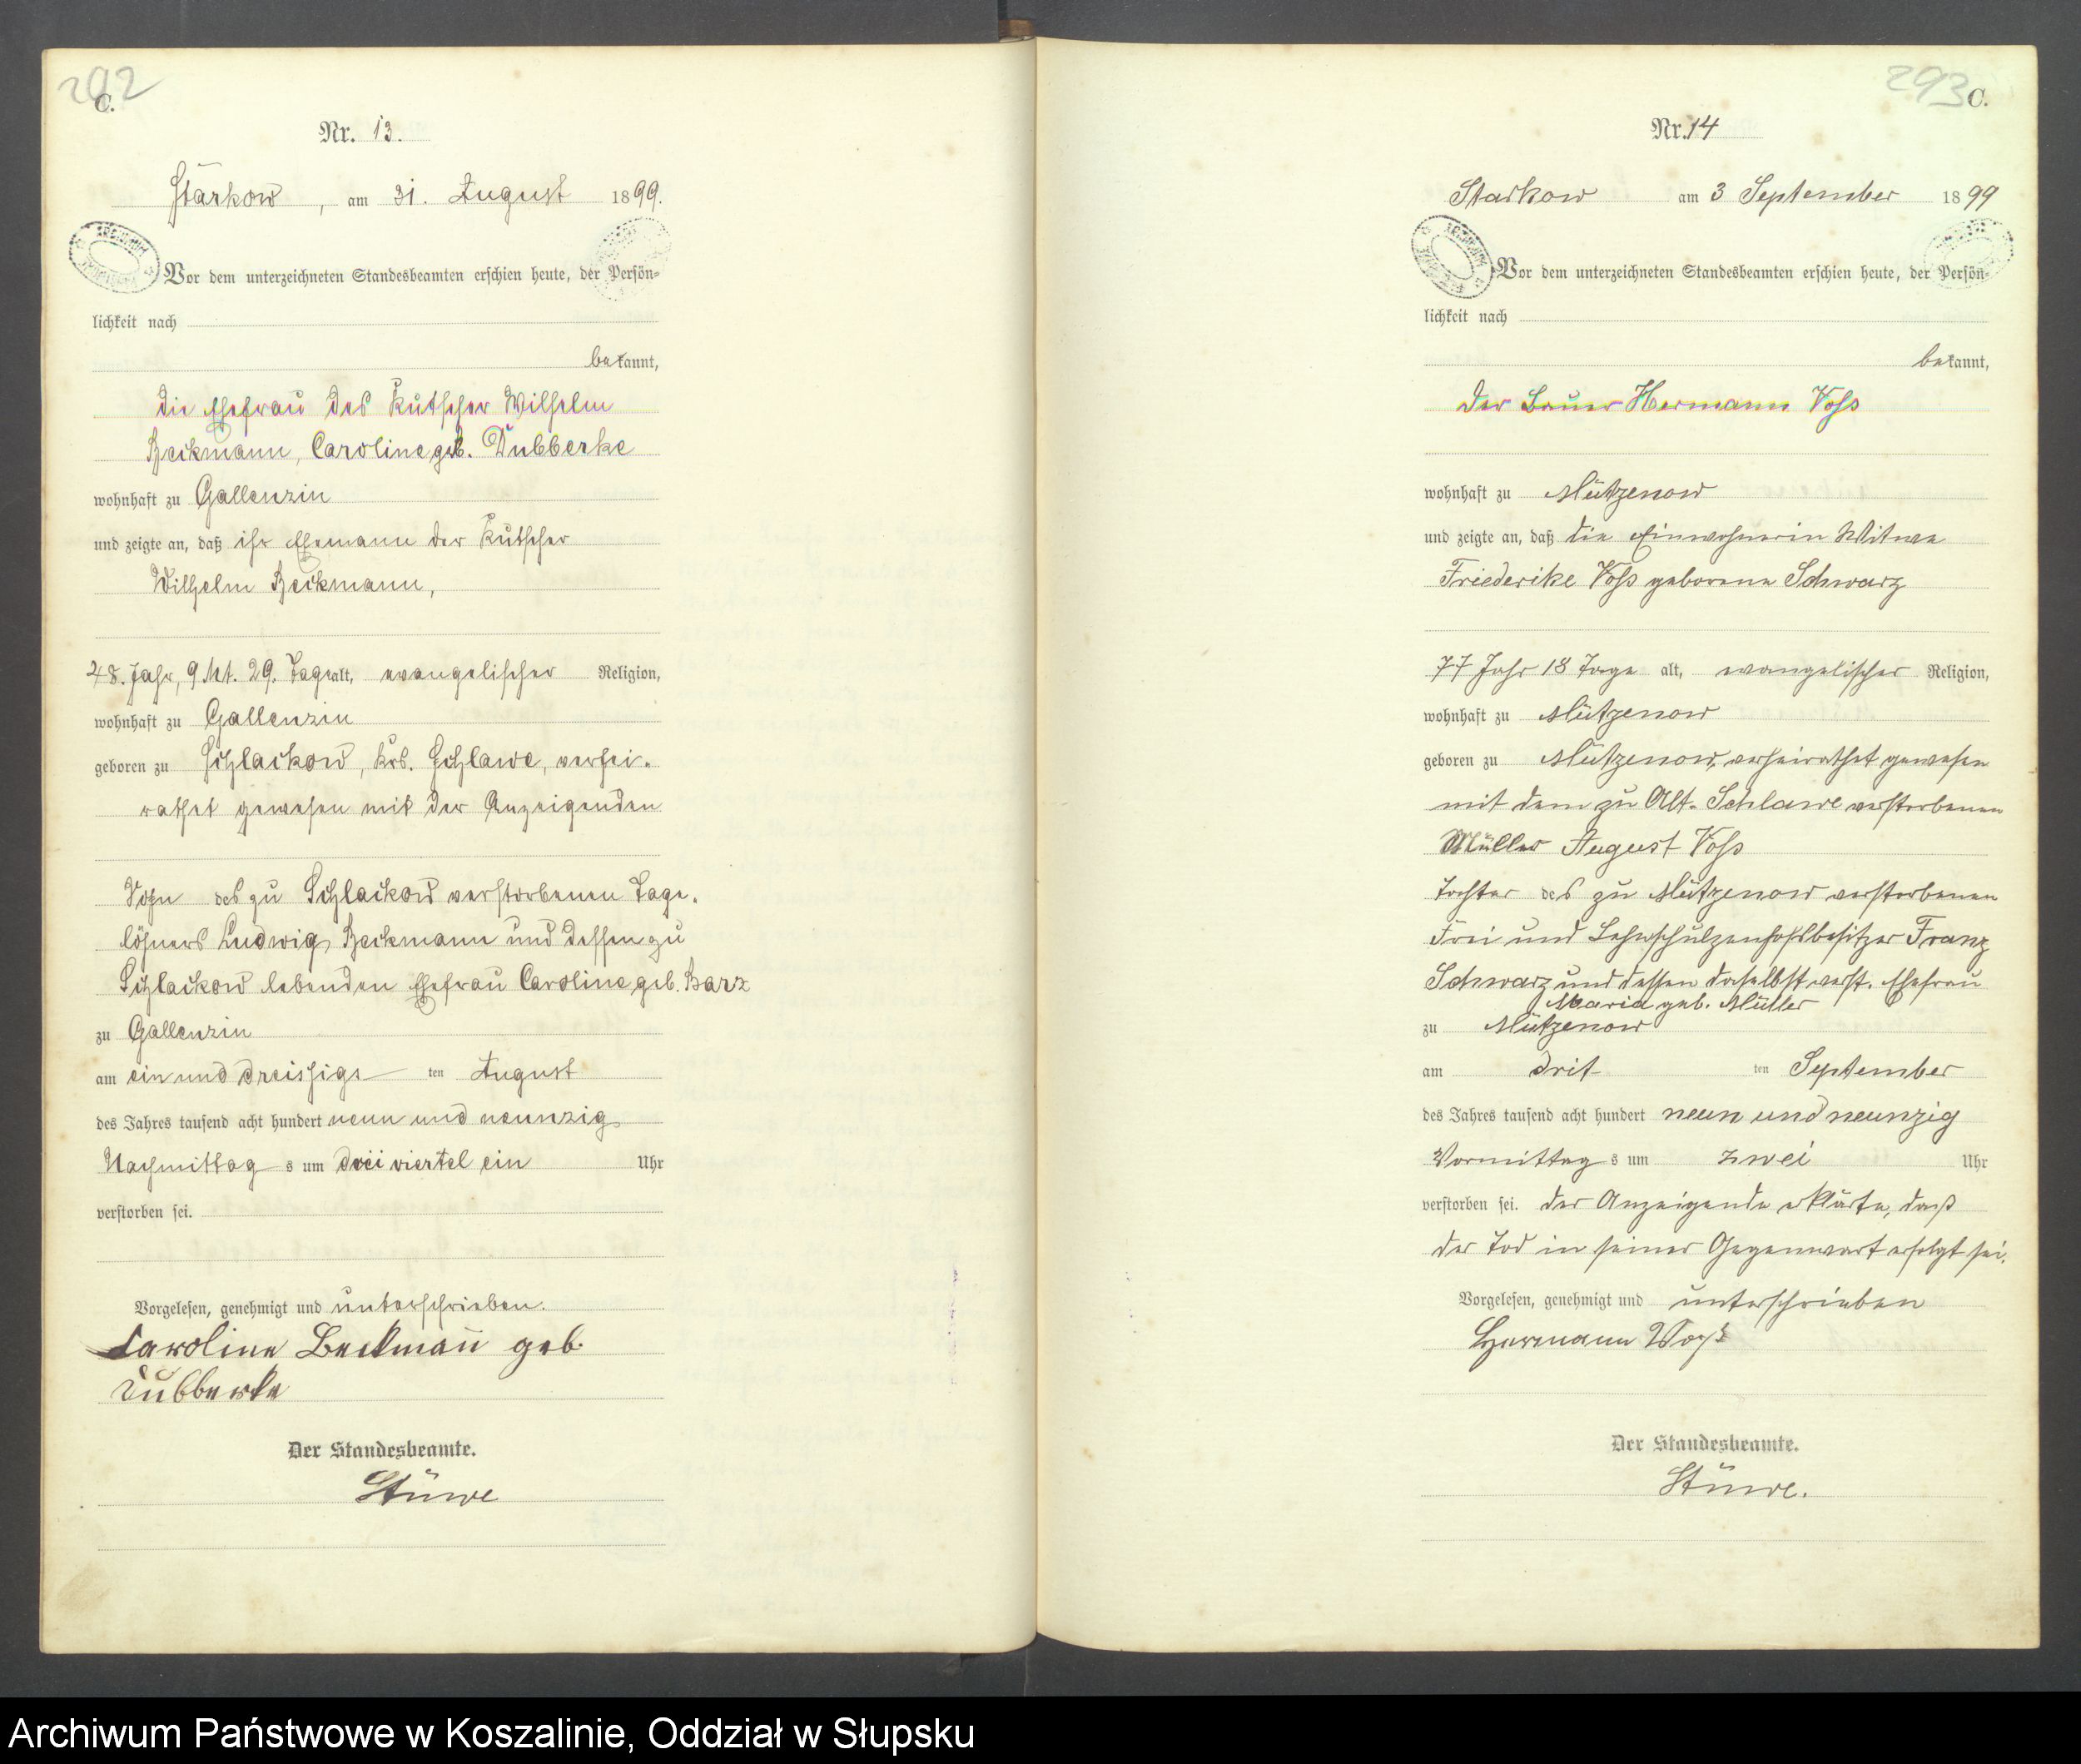 292
C.
Nr. 13.
Starkow, am 31. August 1899.
Vor dem unterzeichneten Standesbeamten erschien heute, der Persön-
lichkeit nach
bekannt,
die Ehefrau des Kutscher Wilhelm
Beckmann, Caroline geb. Dubberke
wohnhaft zu Gallenzin
und zeigte an, daß ihr Ehemann der Kutscher
Wilhelm Beckmann,
48. Jahr, 9 Mt. 29. Tage alt, evangelischer Religion,
wohnhaft zu Gallenzin
geboren zu Schlackow, Krs. Schlawe, verhei-
rathet gewesen mit der Anzeigenden
Sohn des zu Schlackow verstorbenen Tage-
löhners Ludwig Beckmann und dessen zu
Schlackow lebenden Ehefrau Caroline geb. Barz
zu Gallenzin
am ein und dreissigs ten August
des Jahres tausend acht hundert neun und neunzig
Nachmittag s um drei viertel ein Uhr
verstorben sei.
Vorgelesen, genehmigt und unterschrieben.
Caroline Beckmañ geb.
Dubberke
Der Standesbeamte.
Stüwe
293
C.
Nr. 14
Starkow am 3 September 1899
Vor dem unterzeichneten Standesbeamten erschien heute, der Persön-
lichkeit nach
bekannt,
der Bauer Hermann Voss
wohnhaft zu Mützenow
und zeigte an, daß die Einwohnerin Witwe
Friederike Voss geborene Schwarz
77 Jahr 18 Tage alt, evangelischer Religion,
wohnhaft zu Mützenow
geboren zu Mützenow, verheirathet gewesen
mit dem zu Alt-Schlawe verstorbenen
Müller August Voss
Tochter des zu Mützenow verstorbenen
Frei und Lehnschulzenhofsbesitzer Franz
Schwarz und dessen daselbst verst. Ehefrau
Maria geb. Müller
zu Mützenow
am drit ten September
des Jahres tausend acht hundert neun und neunzig
Vormittag s um zwei Uhr
verstorben sei. der Anzeigende erklärte, daß
der Tod in seiner Gegenwart erfolgt sei.
Vorgelesen, genehmigt und unterschrieben
Hermann Voß
Der Standesbeamte.
Stüwe.
Archiwum Państwowe w Koszalinie, Oddział w Słupsku